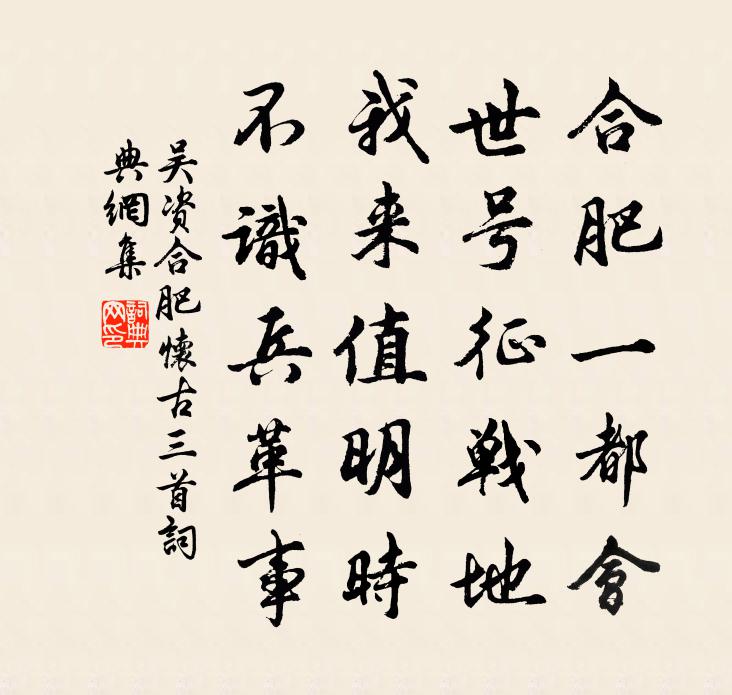 合肥一都會
世号征戦地
我来值明時
不識兵革事
吴资合肥懷古三首詞
典網集
詞典
网印